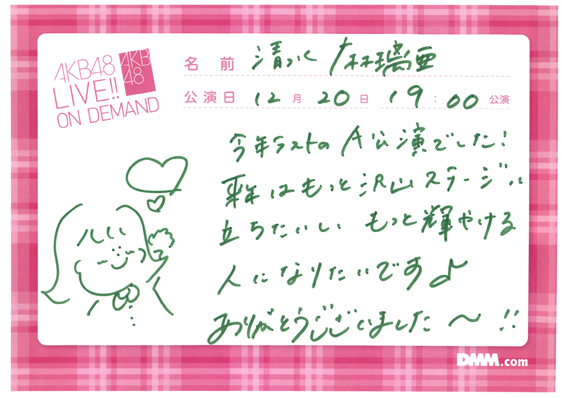 AKB48
LIVE!!
ON DEMAND
AKB
48
名前 清水 麻璃亜
公演日 12月20日 19:00公演
今年ラストのA公演でした!
来年はもっと沢山ステージに
立ちたいしい もっと輝やける
人になりたいです♪
ありがとうございました〜!!
DMM.com